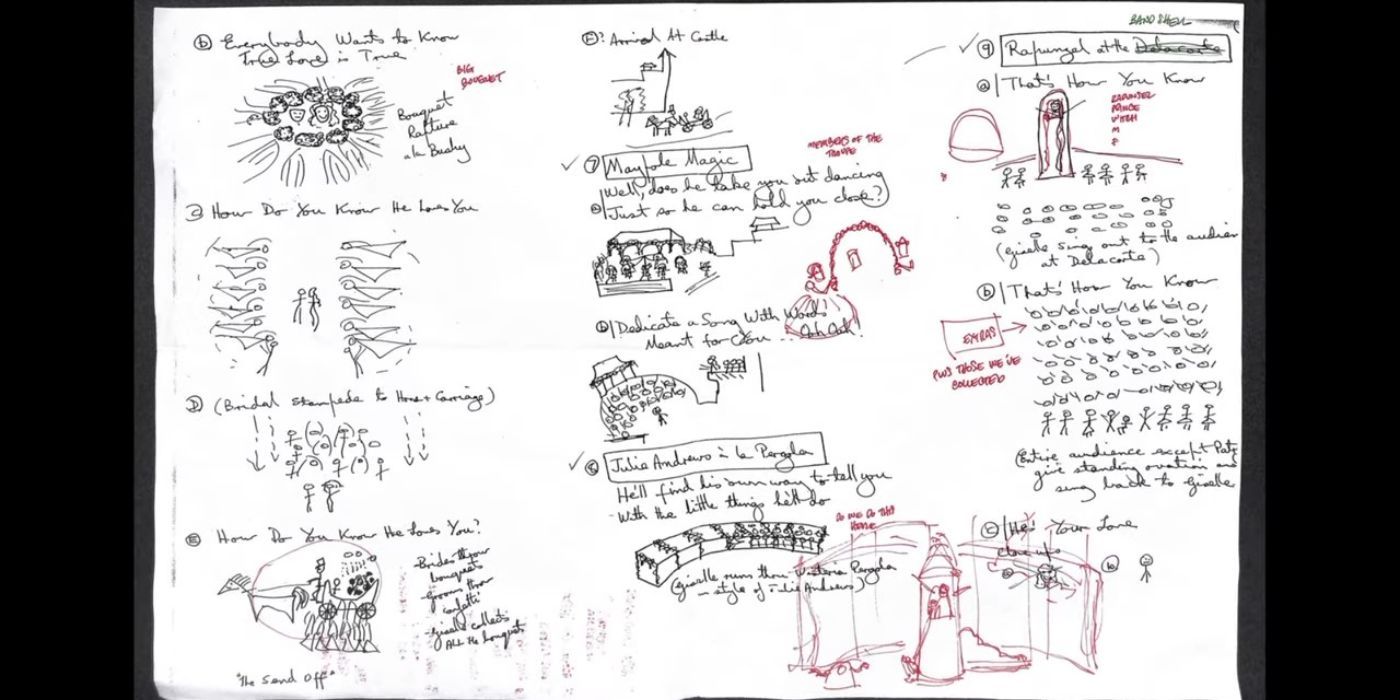 b Everybody Wants to Know
True Love is True
BIG
BOUQUET
Bouquet
Rapture
aka Busby
C How Do You Know He Loves You
D (Bridal Stampede to Horse + Carriage)
E How Do You Know He Loves You?
- Brides throw
bouquets
- Grooms throw
confetti
- Giselle collects
ALL the bouquets
"The Send Off"
F? Arrival At Castle
7 Maypole Magic
MEMBERS OF THE
TROUPE
a Well, does he take you out dancing
Just so he can hold you close?
b Dedicate a Song With Words
Meant for You... Ooh Ooh!
8 Julie Andrews à la Pergola
He'll find his own way to tell you
- With the little things he'll do
(Giselle runs thru Wisteria Pergola
in style of Julie Andrews)
DO WE DO THIS
HERE
BAND SHELL
9 Rapunzel at the Delacorte
a That's How You Know
RAPUNZEL
PRINCE
WITCH
(Giselle sing out to the audien
at Delacorte)
b That's How You Know
EXTRAS
PLUS THOSE WE'VE
COLLECTED
(Entire audience except Patr
give standing ovation and
sing back to Giselle
c He's Your Love
close ups